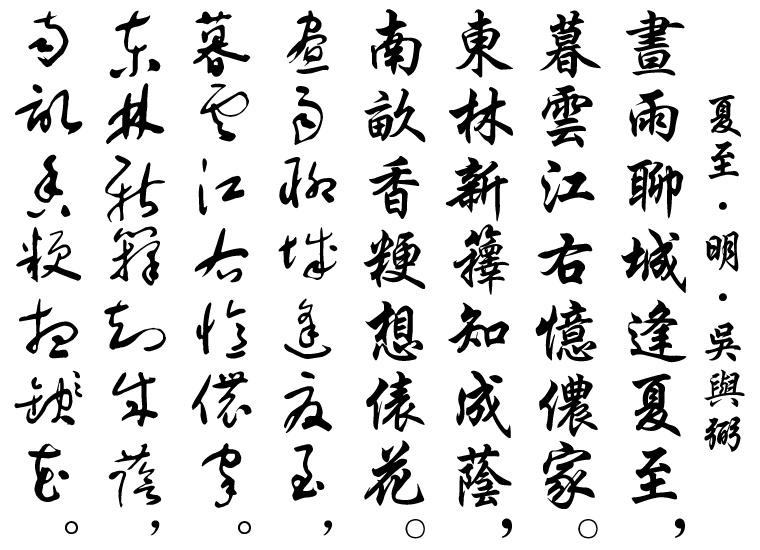 夏至・明・吳與弼
晝雨聊城逢夏至，
暮雲江右憶儂家。
東林新籜知成蔭，
南畝香粳想俵花。
晝雨聊城逢夏至，
暮雲江右憶儂家。
東林新籜知成蔭，
南畝香粳想花。